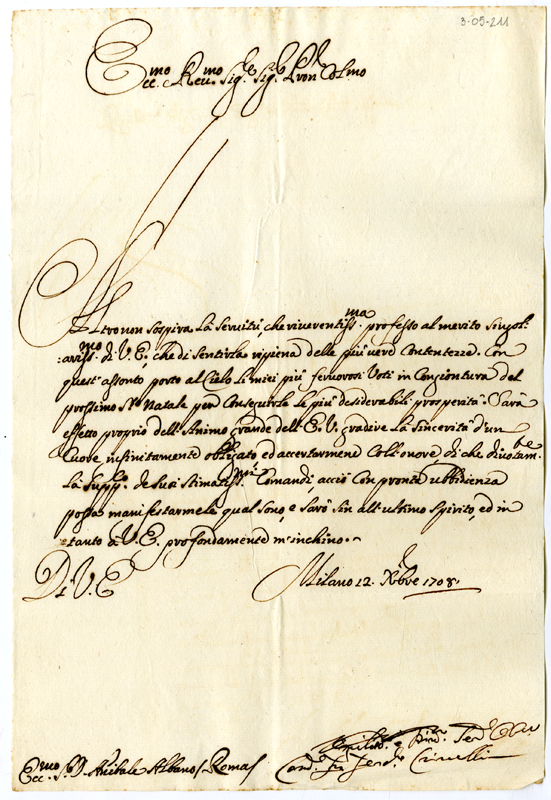 3-05-211
Ecc.mo Rev.mo Sig.e Sig.e Pron Col.mo
Altro non sospira la servitù, che riverentiss.ma professo al merito singol:
:ariss.mo di V.E., che di sentirla ripiena delle più vere Contentezze. Con
quest'assonto porto al Cielo li miei più fervorosi Voti in Congiontura del
prossimo S.to Natale per Conseguirle le più desiderabili prosperità. Sarà
effetto proprio dell'Animo grande dell'E.V. gradire la Sincerità d'un
Cuore infinitamente obligato ed accertarmene Coll'onore di che divotam.te
La Supp.co de suoi stimatiss.mi Comandi, acciò Con pronta ubbidienza
possa manifestarmele qual sono, e sarò sin all'ultimo spirito, ed in
tanto à V.E. profondamente m'inchino.
Di V.E.
Milano 12. Xbre 1708.
Ser.e
Ecc.mo S. D. Anibale Albani Roma
Card. Ferd.o Crivelli